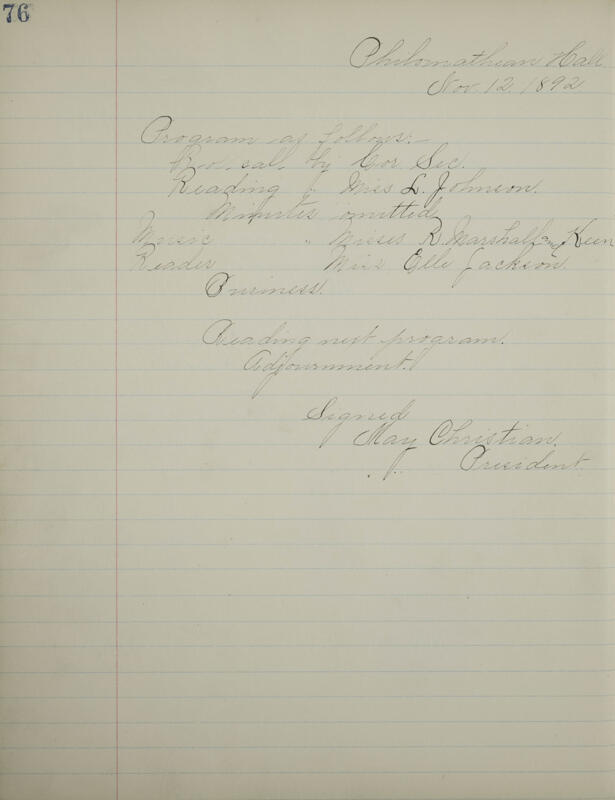 76
Philomathian Hall
Nov. 12. 1892
Program as follows:—
Rol call by Cor Sec.
Reading " Miss L. Johnson.
Minutes omitted
Music " Misses R. Marshall and Keen
Reader Miss Elle Jackson.
Buriness.
Reading next program.
Adjournment.
Signed
May Christian.
President